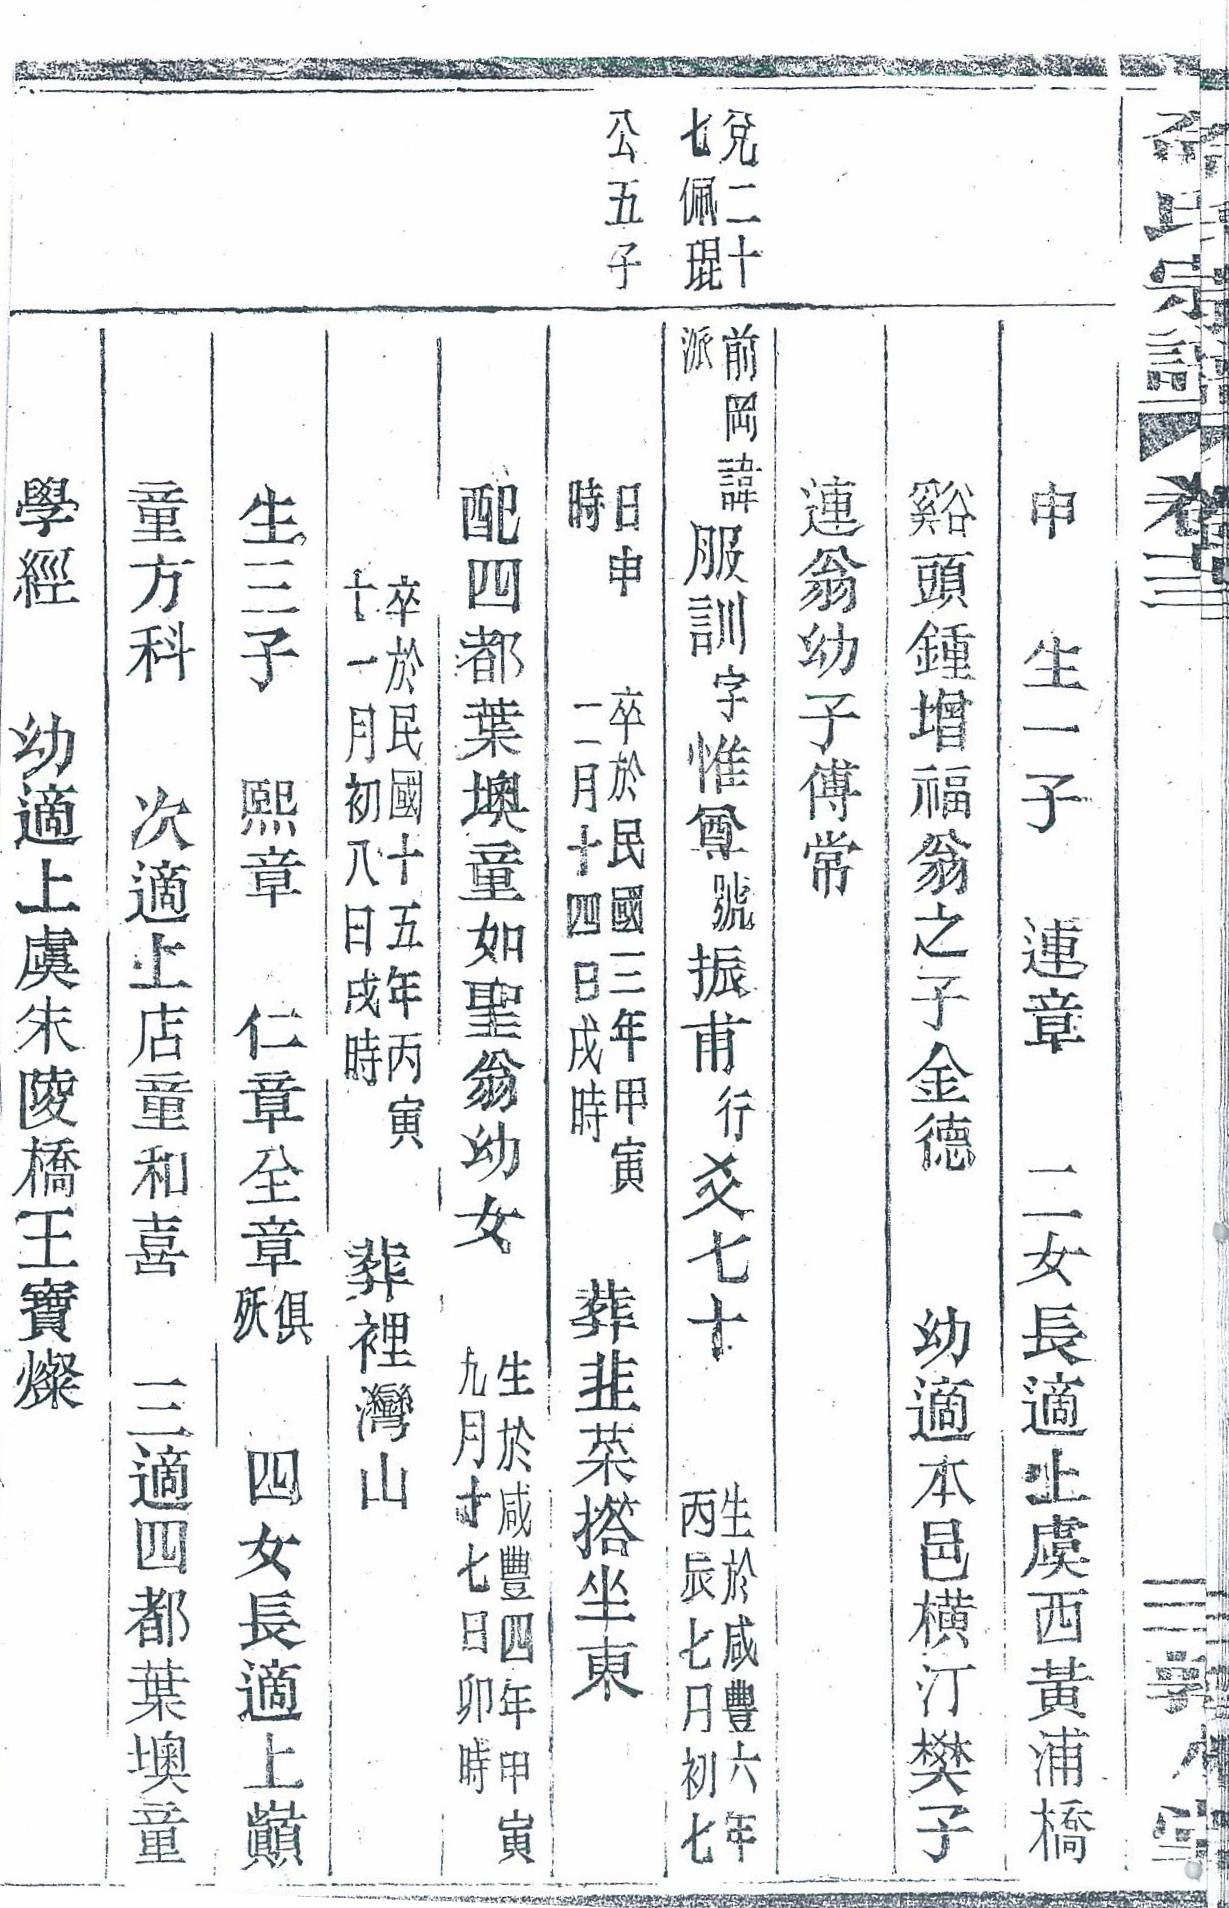 氏宗譜 卷三
申 生一子 連章 二女長適上虞西黃浦橋
谿頭鍾增福翁之子金德 幼適本邑橫汀樊子
連翁幼子傅常
兌二十
七佩琨
公五子
前岡諱
派
服訓字惟尊號振甫行爻七十
生於咸豐六年
丙辰七月初七
日申
時
卒於民國三年甲寅
二月十四日戌時
葬韭菜撘坐東
配四都葉墺童如聖翁幼女
生於咸豐四年甲寅
九月十七日卯時
卒於民國十五年丙寅
十一月初八日戌時
葬裡灣山
生三子 熙章 仁章全章
俱
殀
四女長適上巔
童方科 次適上店童和喜 三適四都葉墺童
學經 幼適上虞朱陵橋王寶燦